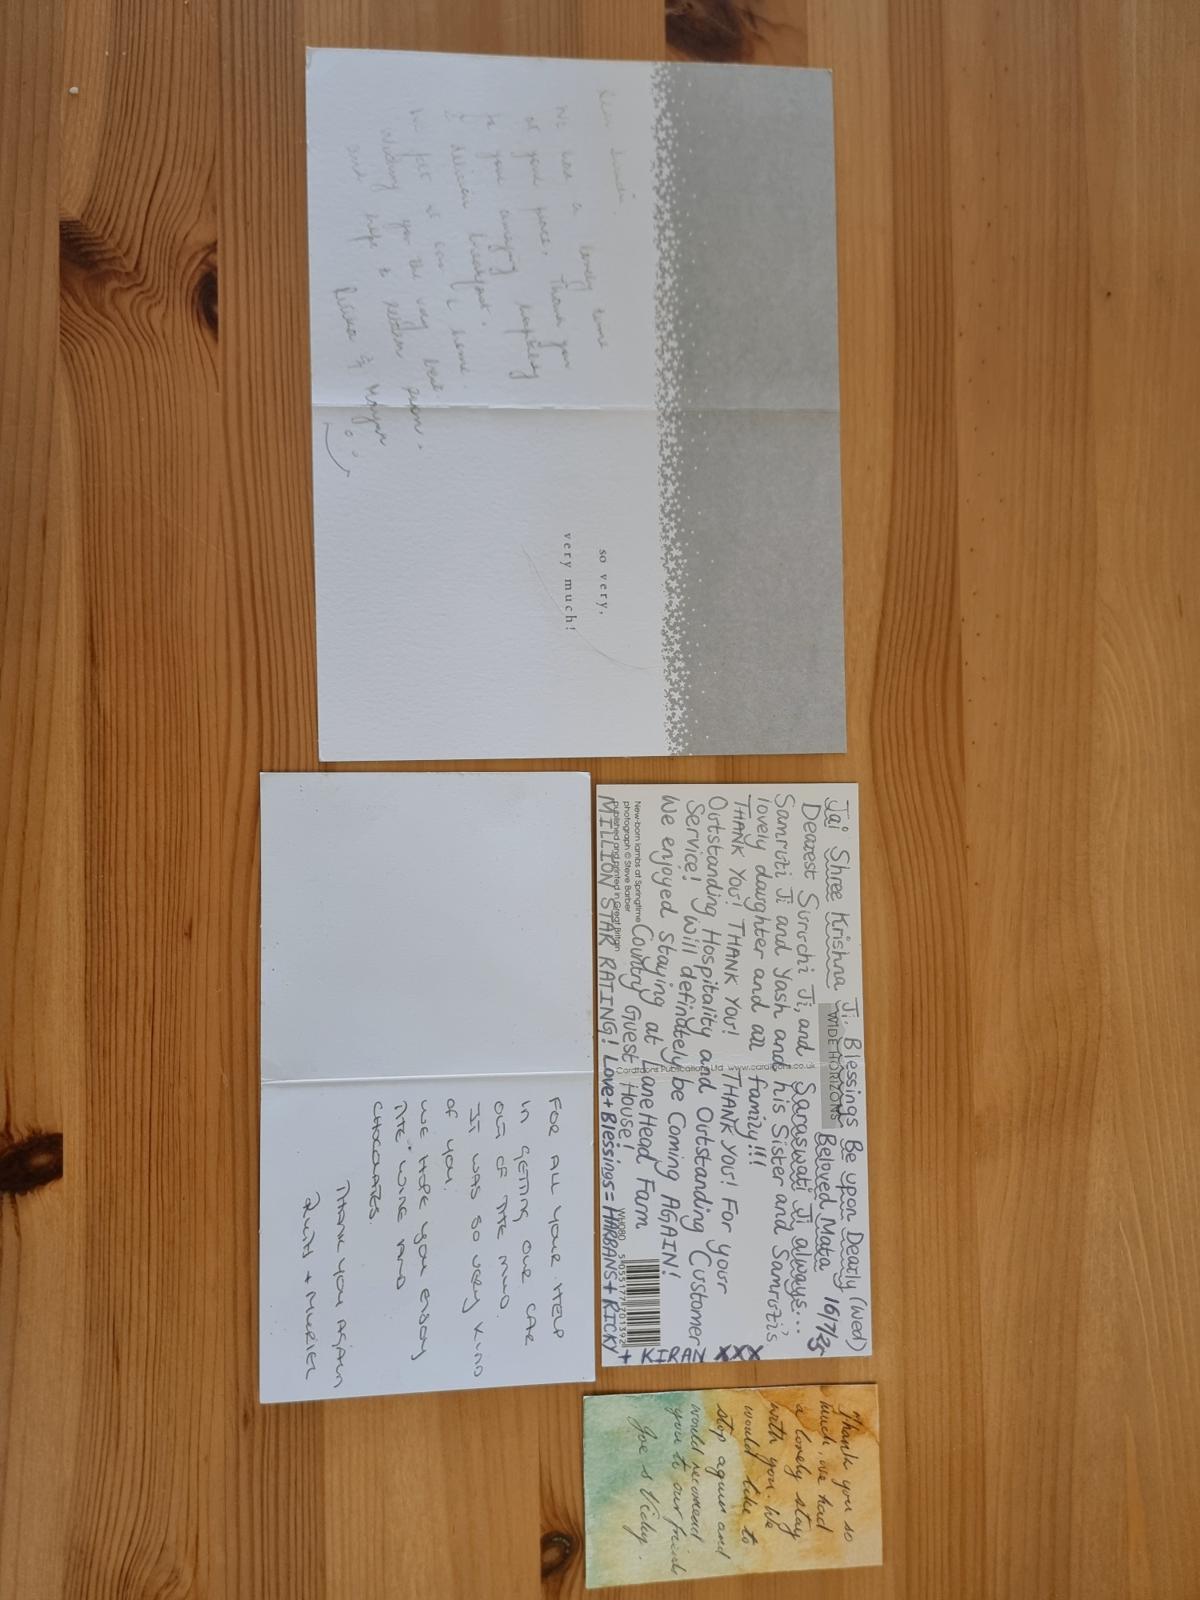 Dear
We had a lovely time
at your place. Thank you
for your amazing hospitality
& delicious breakfast.
We felt at home.
Wishing you the very best
and hope to return again.
& Morgan
so very,
very much!
Jai Shree Krishna Ji. Blessings Be upon Dearly (Wed)
WIDE HORIZONS
Beloved Mata 16/7/25
Dearest Suruchi Ji, and Saraswati Ji always...
Samruti Ji and Yash and his Sister and Samruti's
lovely daughter and all family!!!
THANK YOU! THANK YOU! THANK YOU! For your
Outstanding Hospitality and Outstanding Customer
Service! I will definately be Coming AGAIN!
We enjoyed staying at Lane Head Farm
Country Guest House!
MILLION STAR RATING! Love + Blessings = HARBANS + RICKY
+ KIRAN XXX
New-born lambs at Springtime
photograph © Steve Barber
published and printed in Great Britain
Cardtoons Publications Ltd www.cardtoons.co.uk
WH080
5 055177 701392
FOR ALL YOUR HELP
IN GETTING OUR CAR
OUT OF THE MUD.
IT WAS SO VERY KIND
OF YOU.
WE HOPE YOU ENJOY
THE WINE AND
CHOCOLATES.
THANK YOU AGAIN
RUTH + MURIEL
Thank you so
much, we had
a lovely stay
with you. We
would like to
stop again and
would recomend
you to our friends
Joe & Vicky.